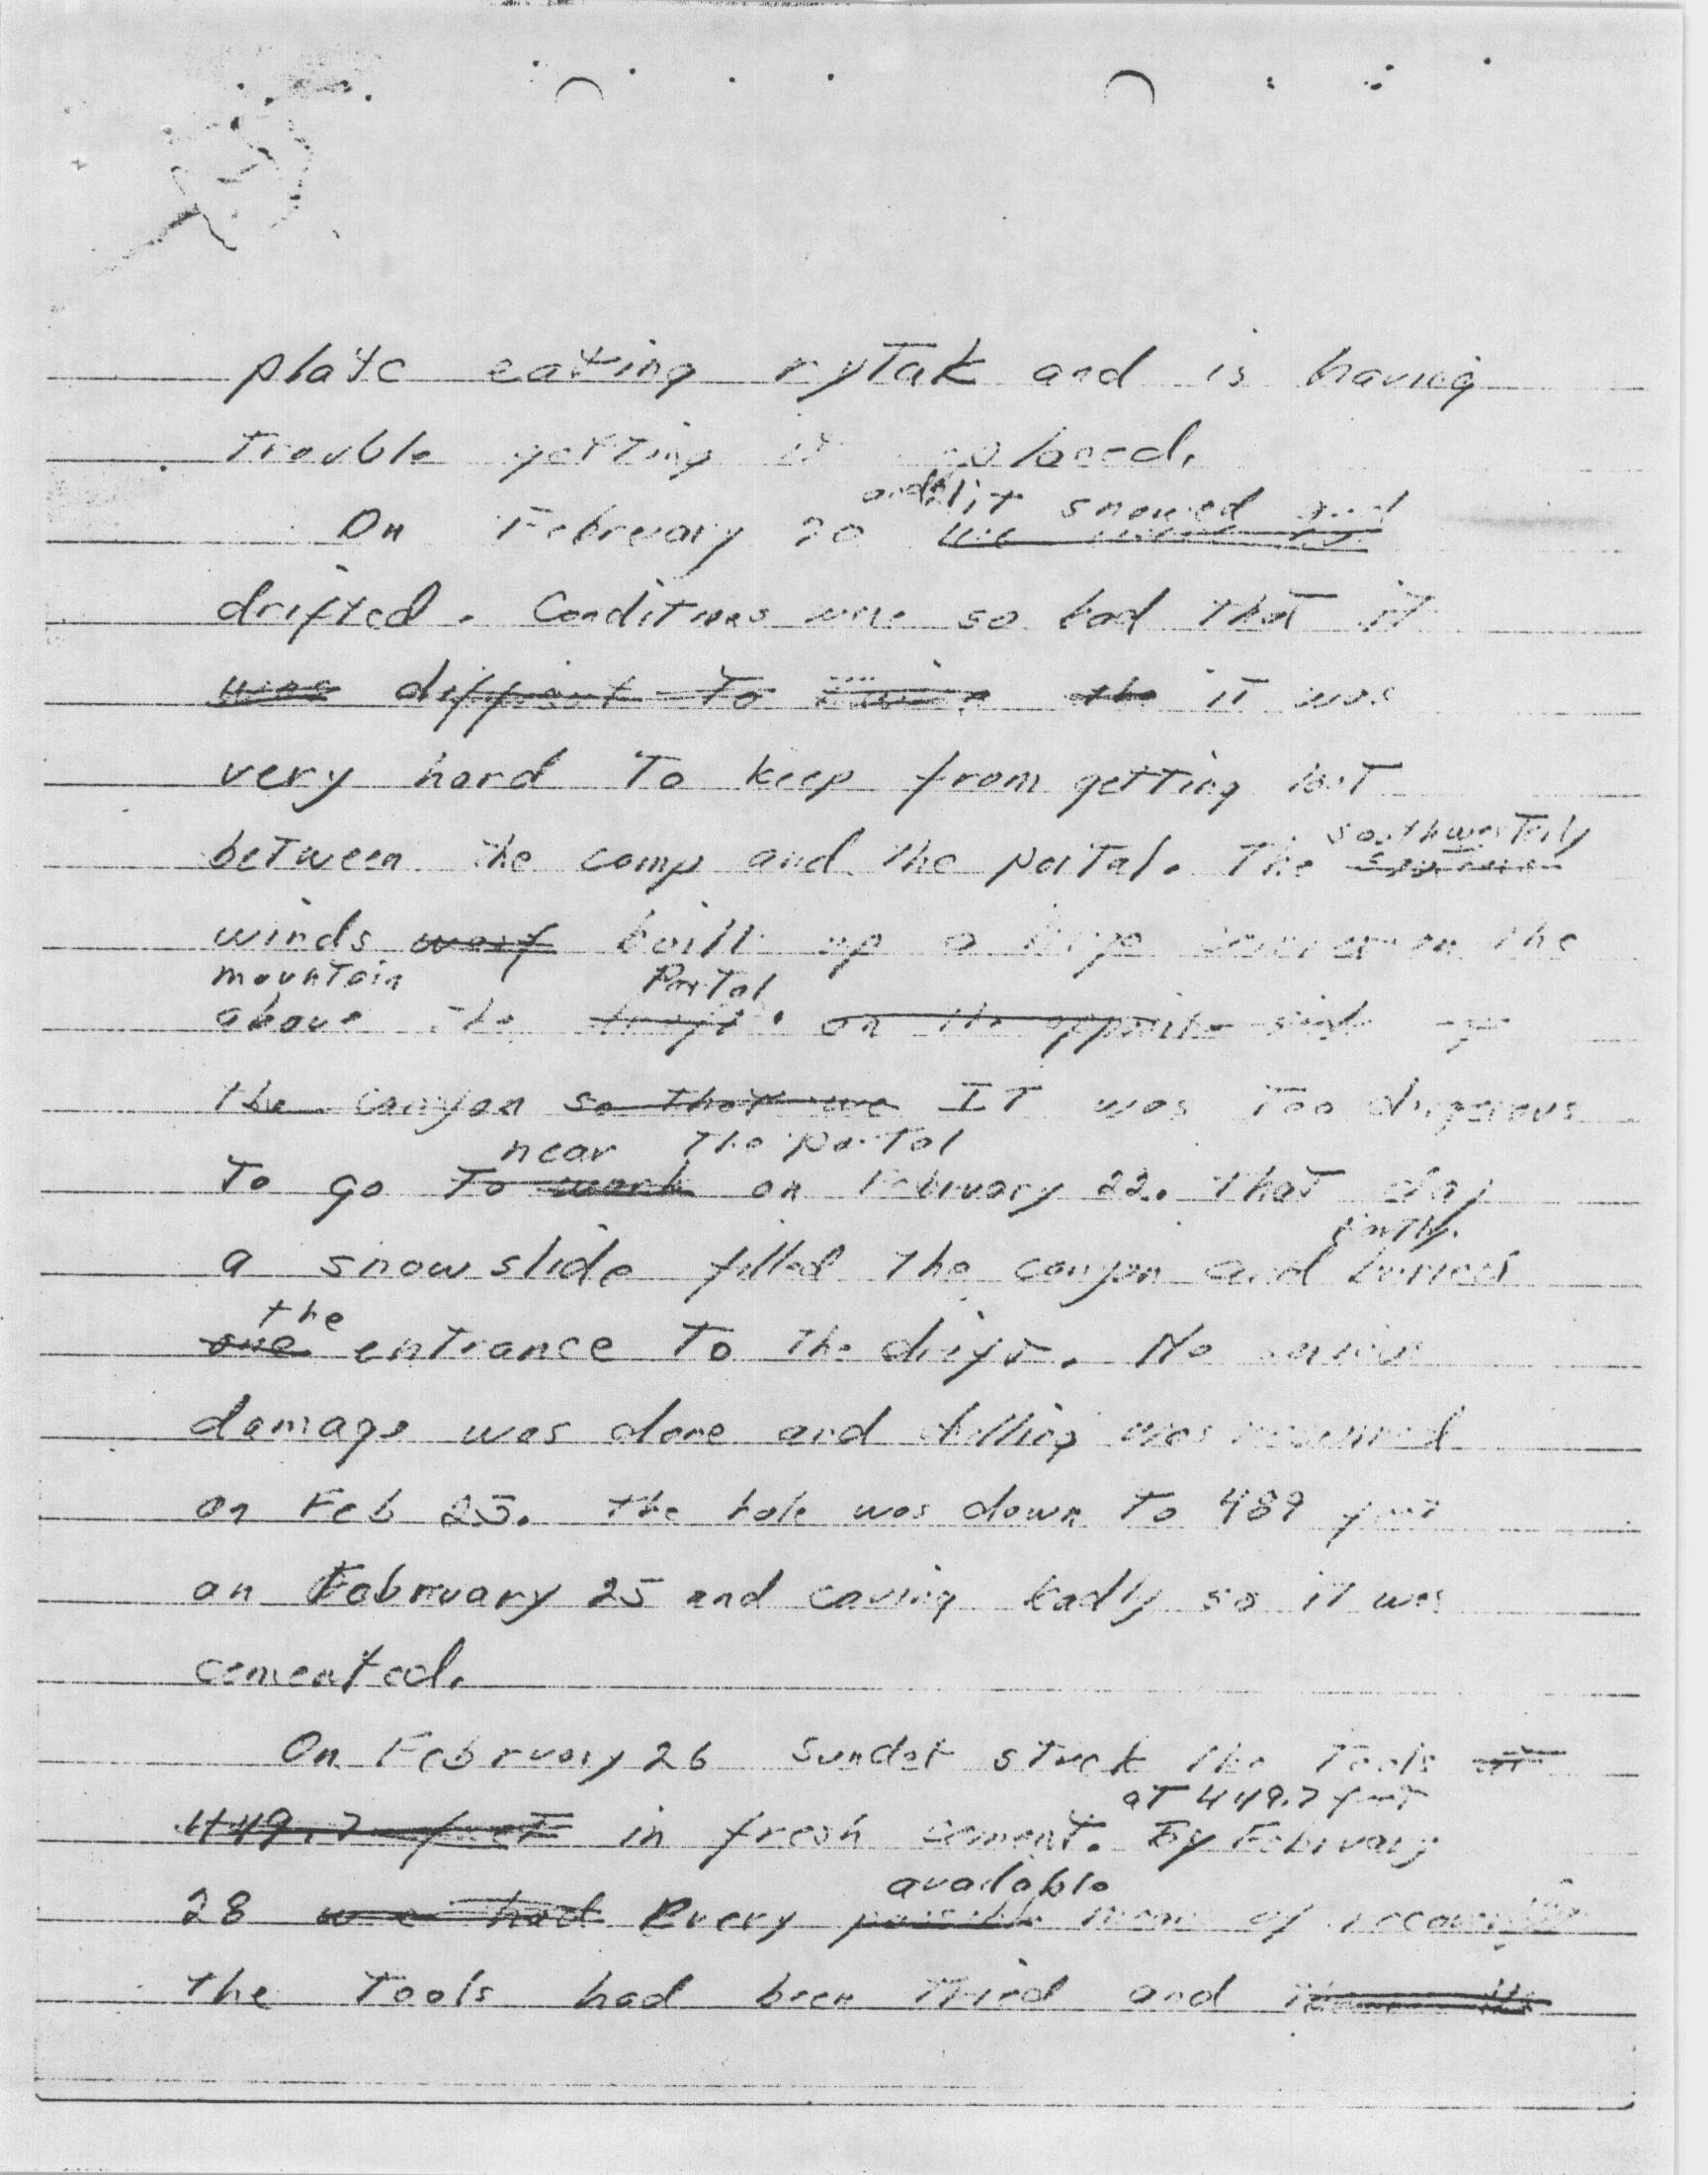 plate eating rytak and is having
trouble getting it
and it snowed and
On February 20
drifted. Conditions were so bad that it
was difficult to the it was
very hard to keep from getting lost
southwesterly
between the camp and the portal. The
winds built up a large on the
mountain Portal
above the drift. on the opposite side of
the canyon so that we It was too dangerous
near the portal
To go to work on February 22. That day
partly
a snowslide filled the canyon and buried
the
one entrance to the drift. No serious
damage was done and drilling was resumed
on Feb 25. The hole was down to 489 feet
on February 25 and caving badly so it was
cemented.
On February 26 Sundat stuck the tools at
at 449.7 feet
449.7 feet in fresh cement. By February
available
28 we had Every possible means of recovering
the tools had been tried and